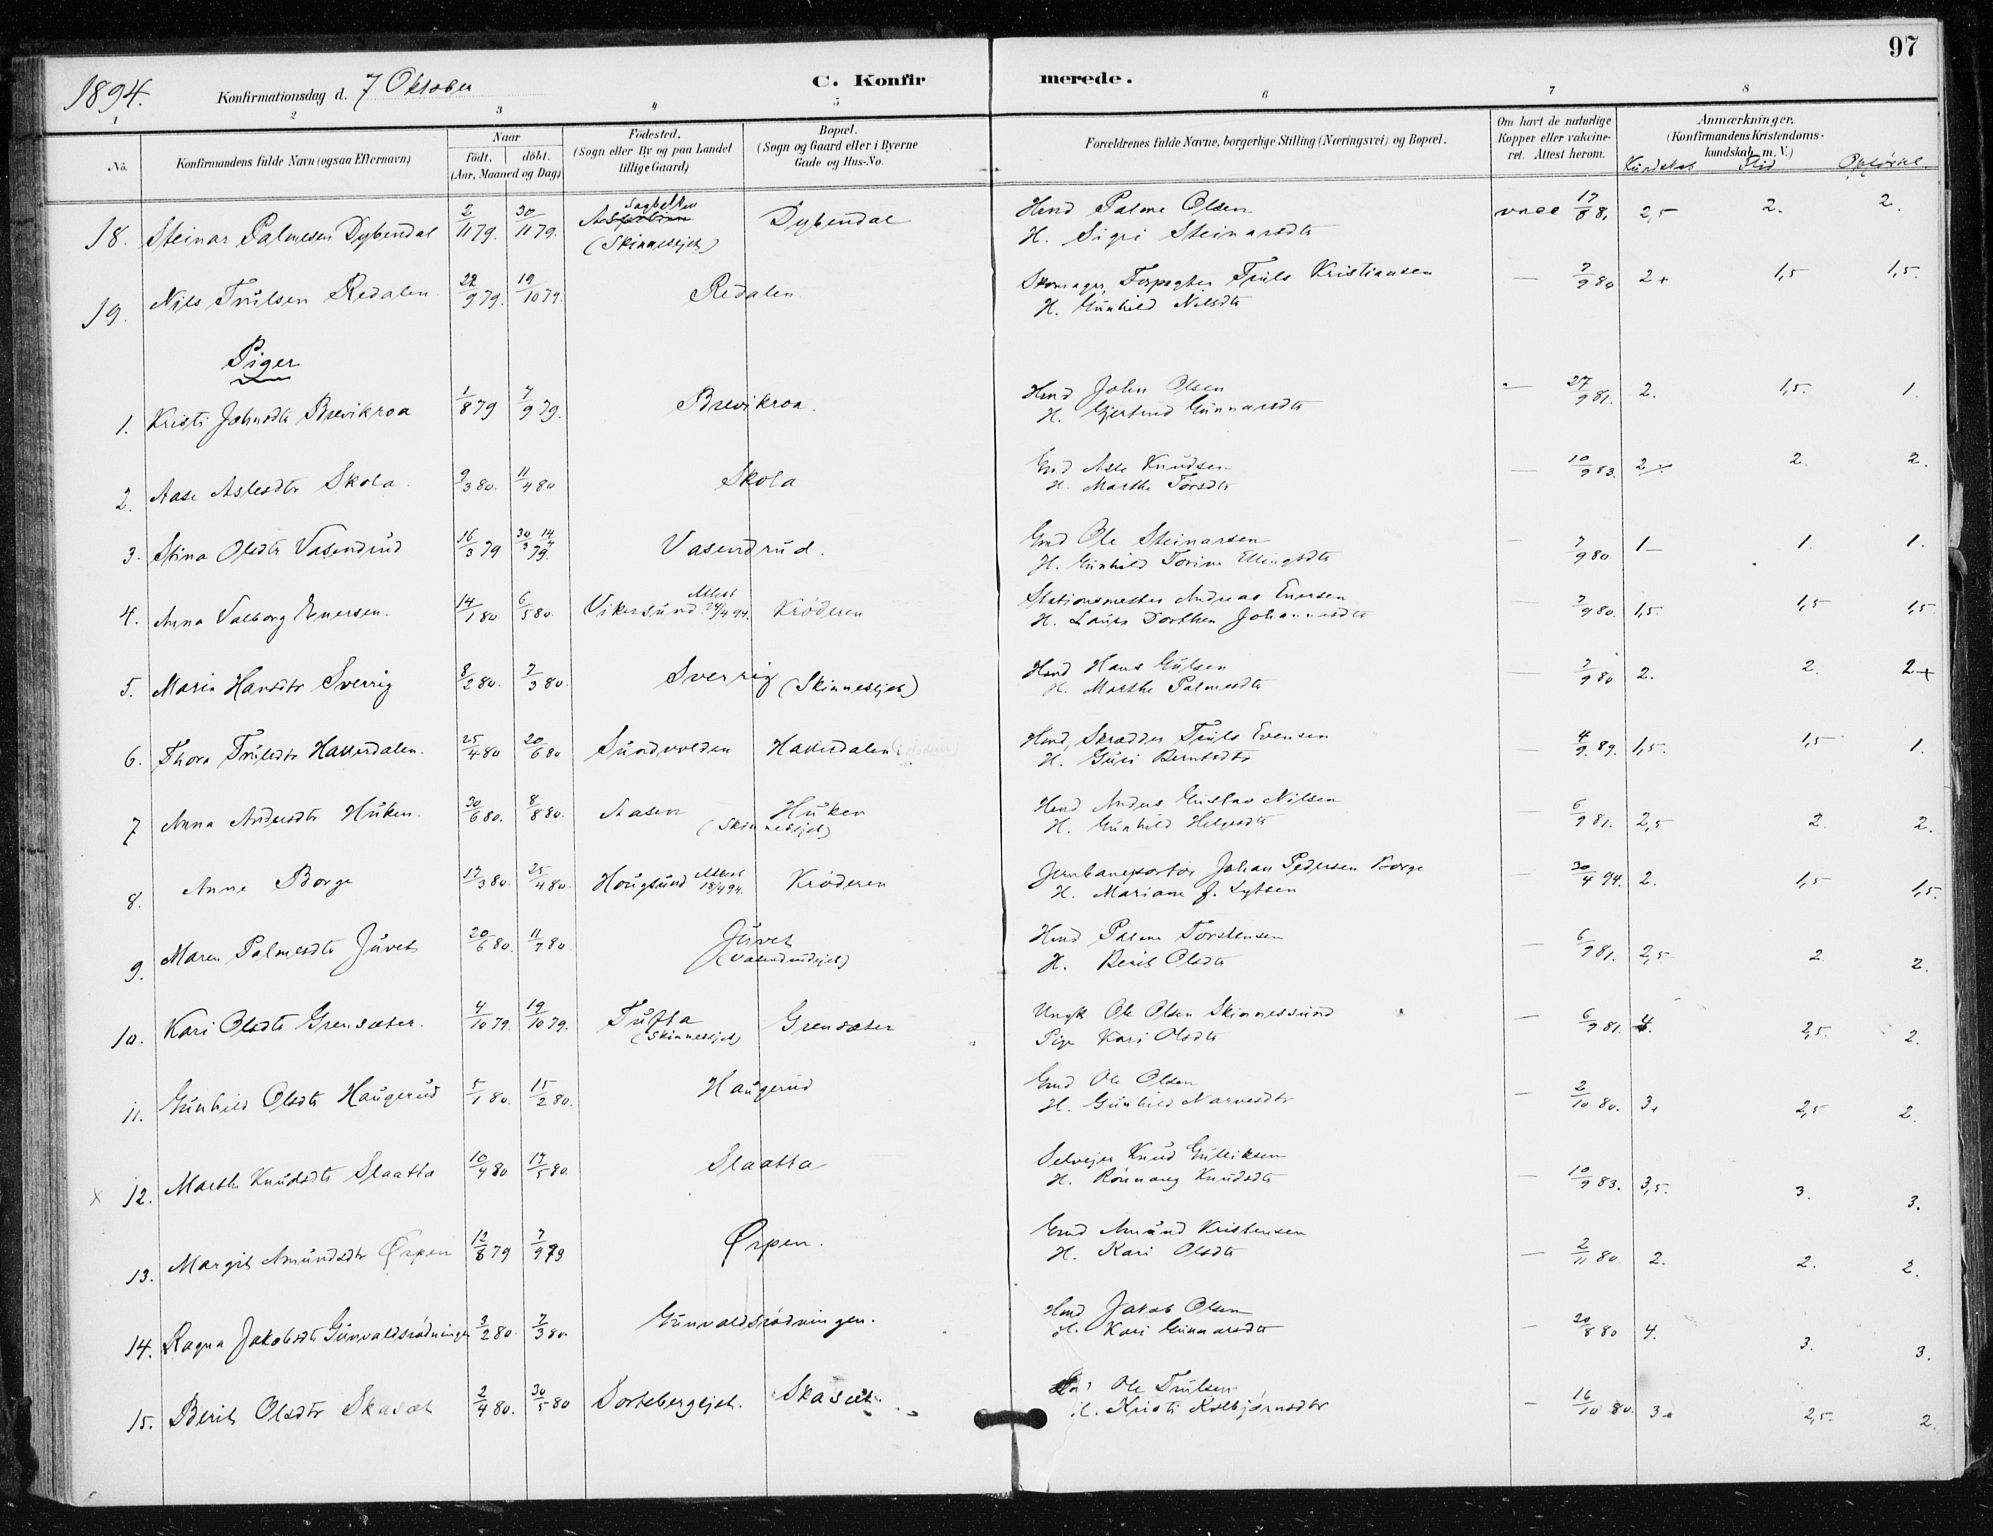 97
1894. Konfirmationsdag d. 7 Oktober C. Konfirmerede.
1 2 3 4 5 6 7 8
No. Konfirmandens fulde Navn (ogsaa Efternavn) Naar Født. døbt. (Aar, Maaned og Dag) Fødested. (Sogn eller By og paa Landet tillige Gaard) Bopæl. (Sogn og Gaard eller i Byerne Gade og Hus-No. Forældrenes fulde Navne, borgerlige Stilling (Næringsvei) og Bopæl. Om havt de naturlige Kopper eller vakcineret. Attest herom. Anmærkninger. (Konfirmandens Kristendomskundskab m. V.) Kundskab Flid Opførsel
18. Steinar Palmesen Dybendal 2/11 79. 30/11 79. (Skinnesejet) Dybendal Hmd Palme Olsen vacc 17/8 81 2,5 2. 2.
H. Sigri Steinarsdtr
19. Nils Trulsen Redalen 22/9 79. 19/10 79. Redalen Skomager, Forpagter Truls Kristiansen — 7/9 80 2+ 1,5 1,5.
H. Gunhild Nilsdtr
Piger
1. Kristi Johnsdtr Brevikroa 1/8 79 7/9 79. Brevikroa. Hmd John Olsen — 27/9 81. 2. 1,5. 1.
H. Gjertrud Gunnarsdtr
2. Aase Aslesdtr Skola. 9/3 80. 11/4 80 Skola Gmd Asle Knudsen — 10/9 83. 2 2. 2.
H. Marthe Torsdtr
3. Stina Olsdtr Vasendrud 16/3 79 30/3 14/4 79. Vasendrud. Gmd Ole Steinarsen — 7/9 80 1- 1. 1.
H. Gunhild Torine Ellingsdtr
4. Anna Valborg Enersen. 14/1 80 6/5 80. Vikersund Attest 24/4 94. Krøderen Stationsmester Andreas Enersen — 7/9 80. 1,5. 1,5 1,5
H. Laura Dorthea Johannesdtr
5. Maria Hansdtr Sverrig 8/2 80. 7/3 80. Sverrig (Skinnesejet) Hmd Hans Gulsen — 7/9 80 2. 2. 2-+
H. Marthe Palmesdtr
6. Thora Trulsdtr Haversdalen. 25/4 80 20/6 80 Sundvolden Haversdalen Hmd, Skrædder Truls Evensen — 4/9 89. 1,5. 1,5. 1.
H. Guri Berntsdtr
7 Anna Andersdtr Huken. 30/6 80. 8/8 80. Aasen Huken (Skinnesejet) Hmd Anders Gustav Nilsen — 6/9 81. 2,5 2. 2.
H. Gunhild Helgesdtr
8. Anne Borge 17/3 80. 25/4 80. Hougsund Attest 18/4 94. Krøderen Jernbaneportør Johan Pedersen Borge — 30/4 94. 2. 1,5 1,5.
H. Mariane f. Lytsen
9. Maren Palmesdtr Juvet 20/6 80. 11/7 80. Juvet (Vasendrudejet) Hmd Palme Torstensen — 6/9 81. 2,5 2. 2.
H. Berit Olsdtr
10. Kari Olsdtr Grensæter. 4/10 79. 19/10 79. Tufta (Skinnesejet) Grensæter Ungk Ole Olsen Skinnessund — 6/9 81. 4. 2,5. 2.
Pige Kari Olsdtr
11. Gunhild Olsdtr Haugerud 5/1 80. 15/2 80. Haugerud Gmd Ole Olsen — 2/10 80. 3+ 2,5 2.
H. Gunhild Narvesdtr
x 12. Marthe Knudsdtr Slaatta 10/4 80 17/5 80. Slaatta Selvejer Knud Gulliksen — 10/9 83. 3,5. 3. 3.
H. Rønnaug Knudsdtr
13. Margit Amundsdtr Ørpen 12/8 79 7/9 79 Ørpen. Gmd Amund Kristensen — 2/11 80. 2. 2. 2.
H. Kari Olsdtr
14. Ragna Jakobsdtr Gunvaldsrødningen 3/2 80. 7/3 80. Gunvaldsrødningen. Hmd Jakob Olsen — 20/8 80 4. 3. 3.
H. Kari Gunnarsdtr
15. Berit Olsdtr Skasæt 2/4 80. 30/5 80 Sortebergejet. Skasæt. Ole Trulsen — 16/10 80. 3+ 2,5. 2.
H. Kristi Kolbjørnsdtr